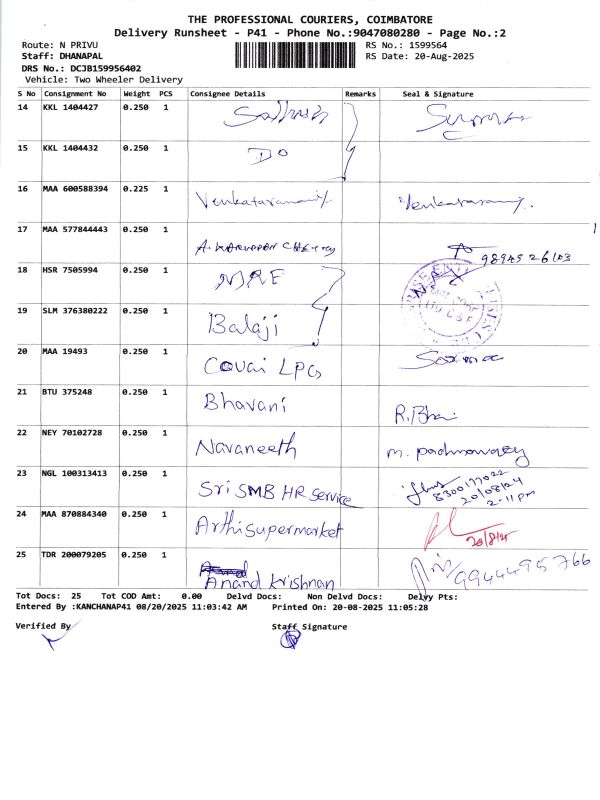 THE PROFESSIONAL COURIERS, COIMBATORE
Delivery Runsheet - P41 - Phone No.:9047080280 - Page No.:2
Route: N PRIVU RS No.: 1599564
Staff: DHANAPAL RS Date: 20-Aug-2025
DRS No.: DCJB159956402
Vehicle: Two Wheeler Delivery
S No Consignment No Weight PCS Consignee Details Remarks Seal & Signature
14 KKL 1404427 0.250 1
15 KKL 1404432 0.250 1 DO
16 MAA 600588394 0.225 1
17 MAA 577844443 0.250 1
18 HSR 7505994 0.250 1 MRF
19 SLM 376380222 0.250 1 Balaji
20 MAA 19493 0.250 1 Covai LPG
21 BTU 375248 0.250 1 Bhavani
22 NEY 70102728 0.250 1 Navaneeth
23 NGL 100313413 0.250 1 Sri SMB HR Service 8300177022
2:11 pm
24 MAA 870884340 0.250 1 Arthi supermarket
25 TDR 200079205 0.250 1 Anand krishnan
Tot Docs: 25 Tot COD Amt: 0.00 Delvd Docs: Non Delvd Docs: Delvy Pts:
Entered By :KANCHANAP41 08/20/2025 11:03:42 AM Printed On: 20-08-2025 11:05:28
Verified By Staff Signature